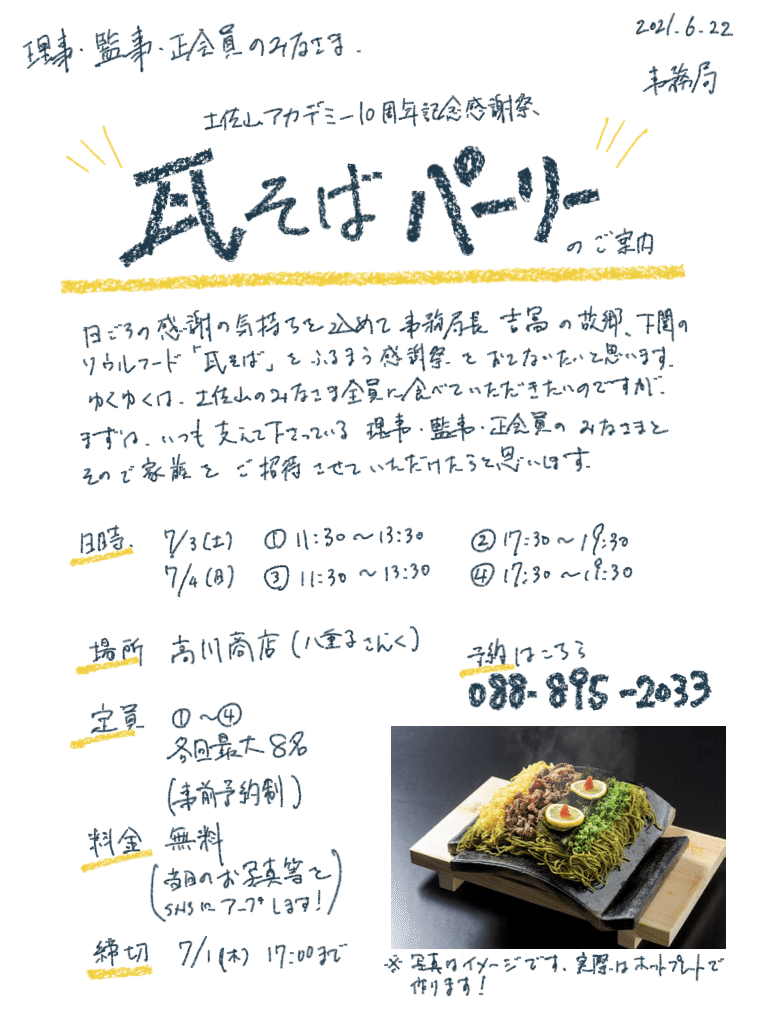 理事・監事・正会員のみなさま.
2021.6.22
事務局
土佐山アカデミー10周年記念感謝祭、
瓦そばパーリー
のご案内
日ごろの感謝の気持ちを込めて事務局長 吉冨の故郷、下関の
ソウルフード「瓦そば」をふるまう感謝祭をおこないたいと思います.
ゆくゆくは、土佐山のみなさま全員に食べていただきたいのですが.
まずは、いつも支えて下さっている 理事・監事・正会員のみなさまと
そのご家族をご招待させていただけたらと思います.
日時. 7/3(土) ①11:30〜13:30 ②17:30〜19:30
7/4(日) ③11:30〜13:30 ④17:30〜19:30
場所 高川商店(八重子さんく)
予約はこちら
088-895-2033
定員 ①〜④
各回最大8名
(事前予約制)
料金 無料
(当日のお写真等を
SNSにアップします!)
締切 7/1(木) 17:00まで
※写真はイメージです、実際はホットプレートで
作ります!